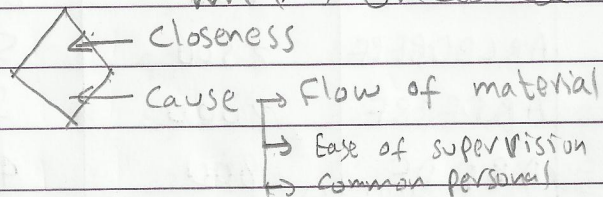 Closeness
Cause → Flow of material
→ Ease of supervision
→ Common personal